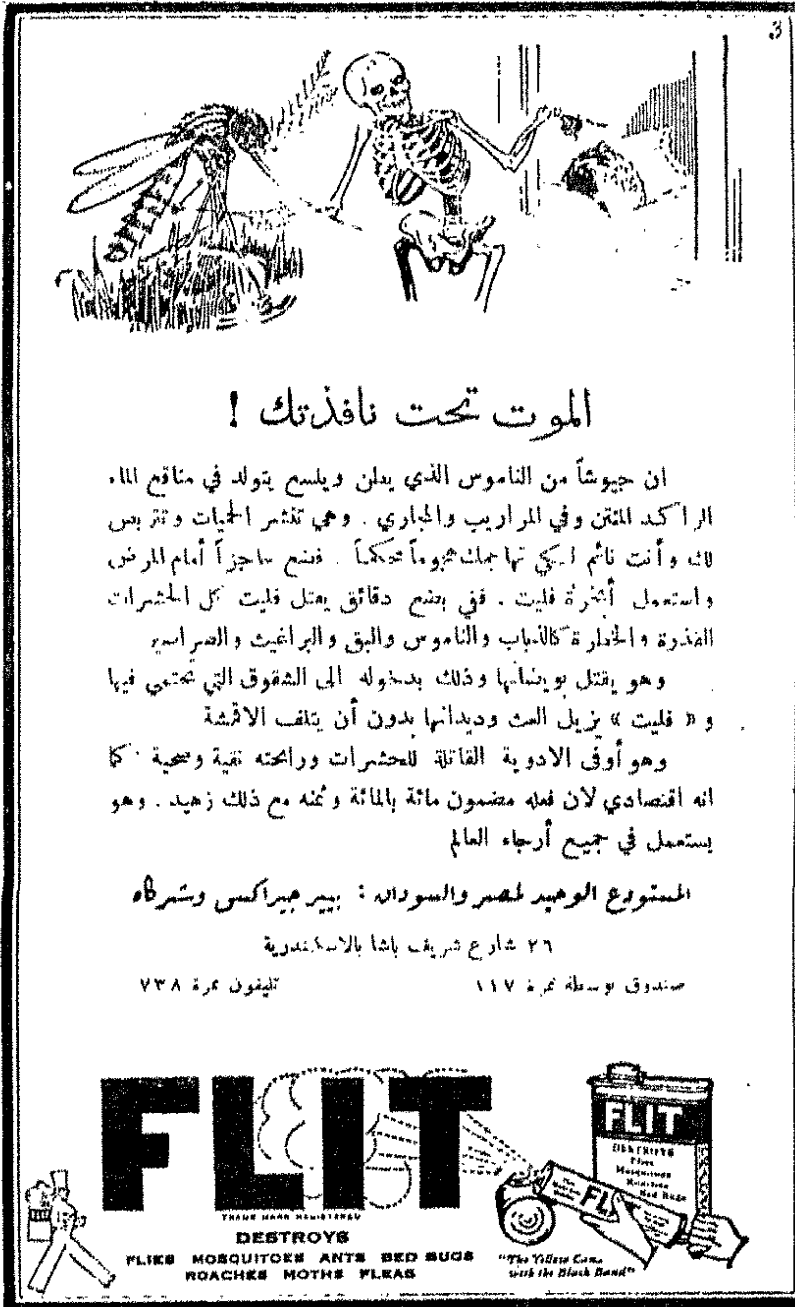 3
الموت تحت نافذتك !
ان جيوشاً من الناموس الذي يطن ويلسع يتولد في مناقع الماء
الراكد المنتن وفي المزاريب والمجاري . وهي تنشر الحميات وتتربص
لك وأنت نائم لكي تهاجمك هجوماً محكماً . فضع حاجزاً أمام المرض
واستعمل أبخرة فليت . ففي بضع دقائق يقتل فليت كل الحشرات
القذرة والخطرة كالذباب والناموس والبق والبراغيث والصراصير
وهو يقتل بويضاتها وذلك بدخوله الى الشقوق التي تحتمي فيها
و « فليت » يزيل العث وديدانها بدون أن يتلف الاقمشة
وهو أوفى الادوية القاتلة للحشرات ورائحته نقية وصحية . كما
انه اقتصادي لان فعله مضمون مائة بالمائة وثمنه مع ذلك زهيد . وهو
يستعمل في جميع أرجاء العالم
المستودع الوحيد لمصر والسودان : بيير جيراكس وشركاه
٢٦ شارع شريف باشا بالاسكندرية
صندوق بوسطة نمرة ١١٧
تليفون نمرة ٧٣٨
FLIT
TRADE MARK REGISTERED
DESTROYS
FLIES MOSQUITOES ANTS BED BUGS
ROACHES MOTHS FLEAS
FLIT
DESTROYS
Flies
Mosquitoes
Roaches
Bed Bugs
"The Yellow Can
with the Black Band"